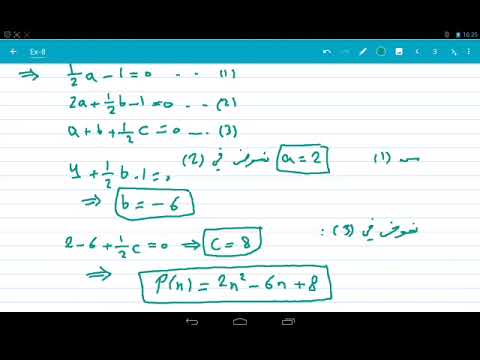 16:35
Ex-8
3
⇒ 1/2 a - 1 = 0 .. (1)
2a + 1/2 b - 1 = 0 .. (2)
a + b + 1/2 c = 0 ... (3)
من (1) a = 2 نعوض في (2)
4 + 1/2 b - 1 = 0
⇒ b = - 6
نعوض في (3) :
2 - 6 + 1/2 c = 0 ⇒ c = 8
⇒ P(n) = 2n² - 6n + 8